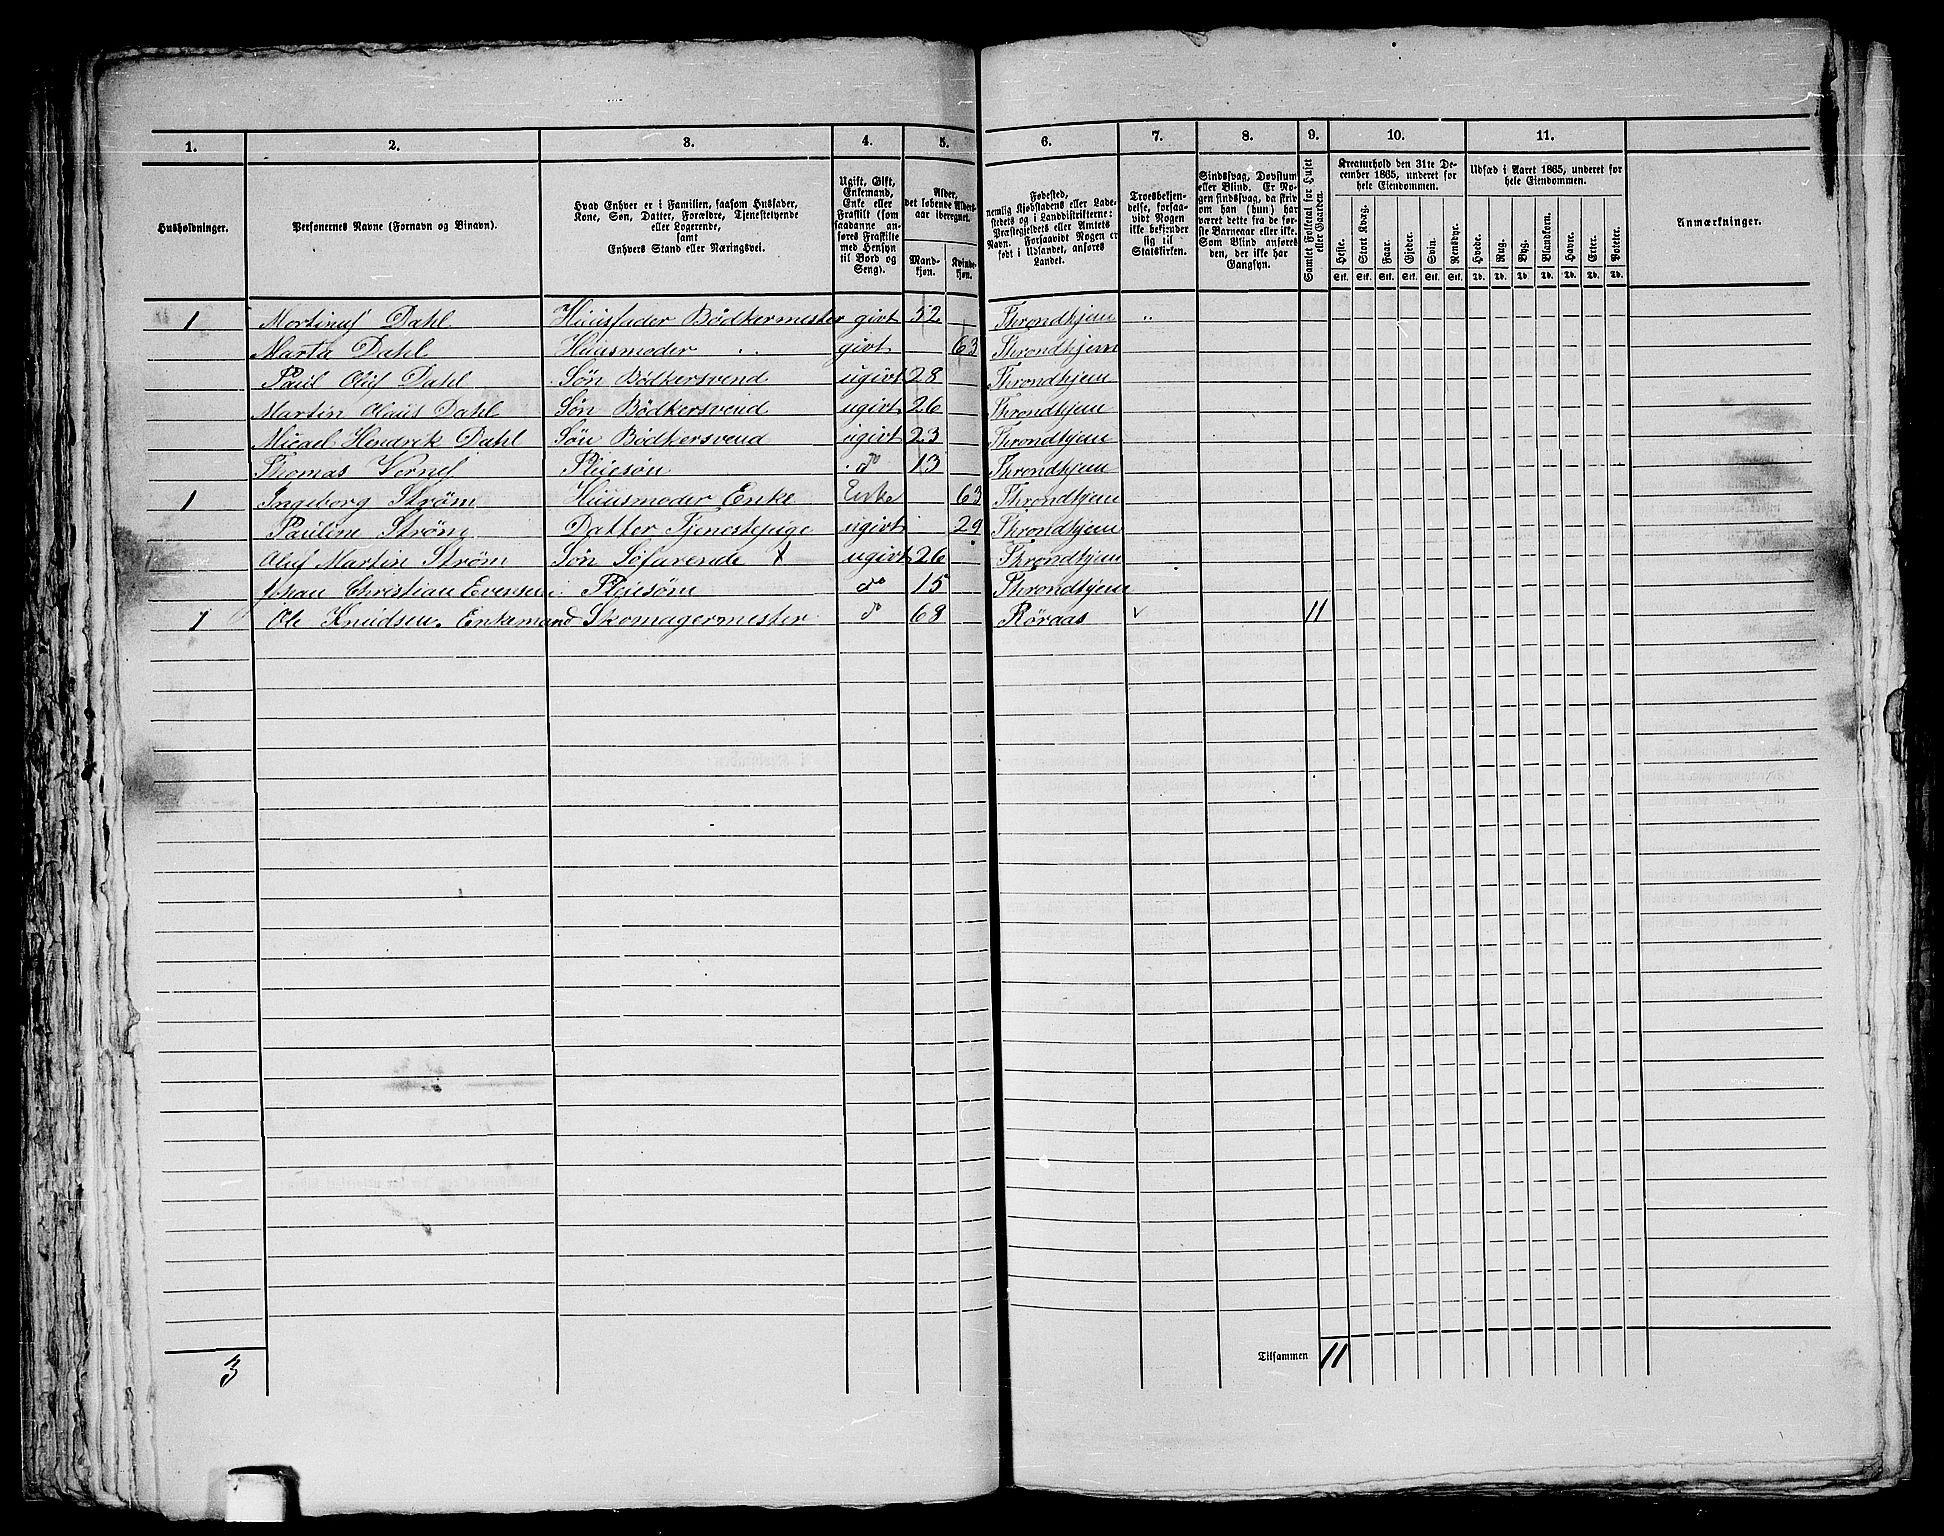 1. 2. 3. 4. 5. 6. 7. 8. 9. 10. 11.
Husholdninger.
Personernes Navne (Fornavn og Binavn).
Hvad Enhver er i Familien, saasom Husfader,
Kone, Søn, Datter, Forældre, Tjenestetyende
eller Logerende,
samt
Enhvers Stand eller Næringsvei.
Ugift, Gift,
Enkemand,
Enke eller
Fraskilt (som
saadanne an-
føres Fraskilte
med Hensyn
til Bord og
Seng).
Alder,
det løbende Alders-
aar iberegnet.
Mand-
kjøn.
Kvinde-
kjøn.
Fødested,
nemlig Kjøbstadens eller Lade-
stedets og i Landdistrikterne:
Præstegjeldets eller Amtets
Navn. Forsaavidt Nogen er
født i Udlandet, anføres
Landet.
Troesbekjen-
delse, forsaa-
vidt Nogen
ikke bekjender
sig til
Statskirken.
Sindssvag, Døvstum
eller Blind. Er No-
gen sindssvag, da skriv
om han (hun) har
været dette fra de før-
ste Barneaar eller ikke.
Som Blind anføres
den, der ikke har
Gangsyn.
Samlet Folketal for Huset
eller Gaarden.
Kreaturhold den 31te De-
cember 1865, underet for
hele Eiendommen.
Heste. Stort Kvæg. Faar. Gjeder. Svin. Rensdyr.
Stk. Stk. Stk. Stk. Stk. Stk.
Udsæd i Aaret 1865, underet for
hele Eiendommen.
Hvede. Rug. Byg. Blandkorn. Havre. Erter. Poteter.
Td. Td. Td. Td. Td. Td. Td.
Anmærkninger.
1 Mortinus Dahl Huusfader Bödkermester givt 52 Throndhjem "
Marta Dahl Huusmoder " givt 63 Throndhjem
Paul Oluf Dahl Søn Bödkersvend ugivt 28 Throndhjem
Martin Olaus Dahl Søn Bödkersvend ugivt 26 Throndhjem
Micael Hendrik Dahl Søn Bödkersvend ugivt 23 Throndhjem
Thomas Pleiesøn do 13 Throndhjem
1 Ingeborg Strøm Huusmoder Enke Enke 63 Throndhjem
Pauline Strøm Datter Tjenestepige ugivt 29 Throndhjem
Oluf Martin Strøm Søn Søfarende X ugivt 26 Throndhjem
Johan Christian Evensen Pleiesøn do 15 Throndhjem
1 Ole Knudsen. Enkemand Skomagermester do 68 Röraas v 11
3
Tilsammen 11